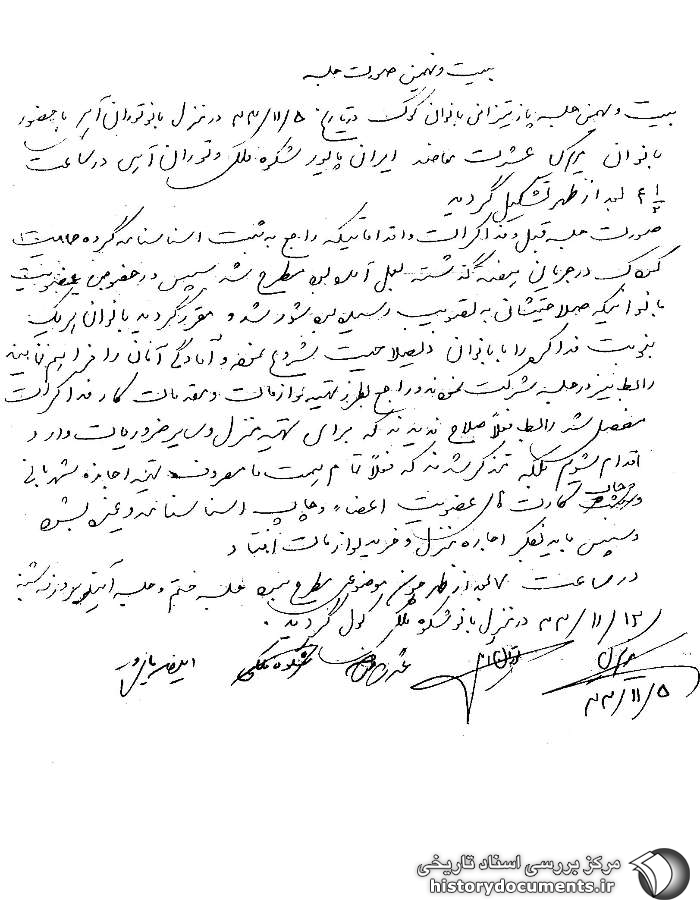 بیست و نهمین صورت جلسه
بیست و نهمین جلسه بانوان کوک در تاریخ ۳۳/۱۱/۵ در منزل بانو توران آریس با حضور
بانوان عشرت ایران پاپور شکوه ملکی و توران آریس در ساعت
۴ ۱/۲ بعد از ظهر تشکیل گردید
صورت جلسه قبل و مذاکرات و اقداماتیکه راجع به ثبت اساسنامه گروه حمایت
کودک در جریان هفته گذشته بعمل آمده بود مطرح شد سپس در خصوص عضویت
بانوانیکه صلاحیتشان به تصویب رسیده بود شور شد و مقرر گردید بانوان هر یک
بنوبت مذاکره را با بانوان ذیصلاحیت شروع نموده و آمادگی آنان را فراهم نمایند
رابط نیز در جلسه شرکت نمودند و راجع بطرز تهیه لوازمات و مقدمات کار مذاکرات
مفصل شد رابط فعلاً صلاح ندیدند که برای تهیه منزل و سایر ضروریات وارد
اقدام شویم بلکه متذکر شدند که فعلاً تمام همت ما مصروف تهیه اجازه شهربانی
و چاپ کارت های عضویت اعضاء و چاپ اساسنامه و غیره بشود
و سپس باید بفکر اجاره منزل و خرید لوازمات افتاد
در ساعت ۷ بعد از ظهر چون موضوعی مطرح نبود جلسه ختم و جلسه آینده بروز سه شنبه
۳۳/۱۱/۱۲ در منزل بانو شکوه ملکی موکول گردید.
شکوه ملکی ایران پاپور
۳۳/۱۱/۵
مرکز بررسی اسناد تاریخی
historydocuments.ir